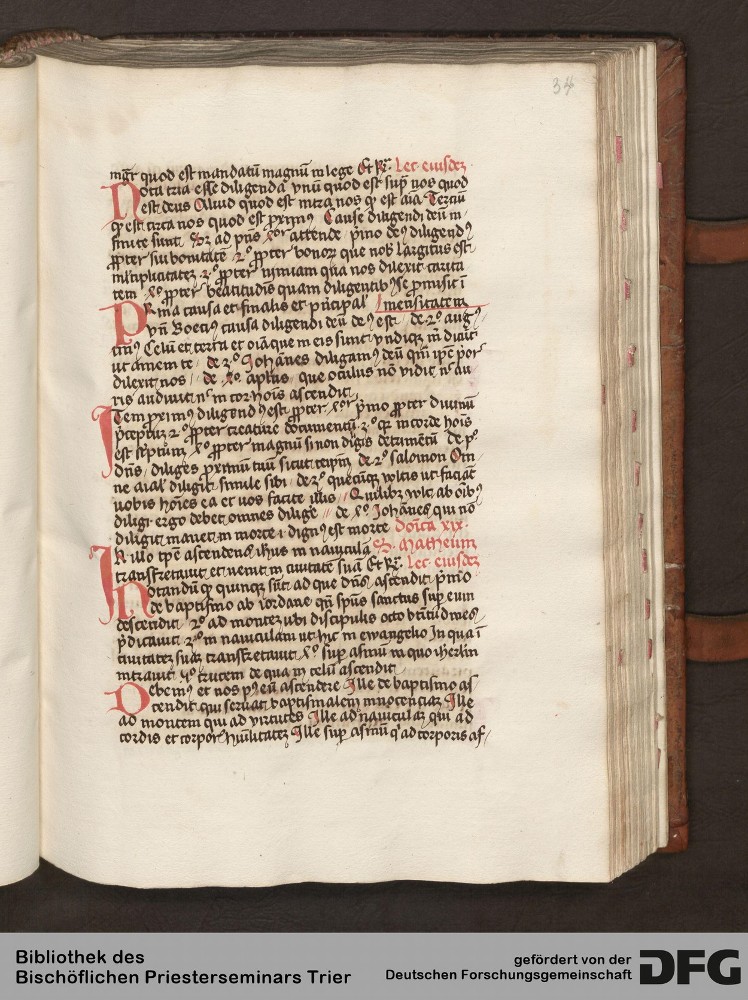 34
mgr̄ quod est mandatū magnū in lege Et Rͣ. Lec̄ eiusdeʒ
Nota tria esse diligenda vnū quod est supͣ nos quod
est deus Aliud quod est intra nos qͥ est aīa Terciū
qͥ est circa nos quod est ꝓximꝰ Cause diligendi deū in-
finite sunt Sʒ ad pn̄s attende pͥmo deꝰ diligendꝰ
ꝓpter suā bonitatē 2ͦ ꝓpter bonoꝝ que nob̄ largitus est
ml̄tiplicitateʒ 3ͦ ꝓpter nimiam qua nos dilexit carita
tem 4ͦ ꝓpter beatitudīs quam diligentibꝰ se ꝓmisit
Prima causa est finalis et pͥncipal̄ īmensitatem
vn̄ Boeciꝰ causa diligendi deū deꝰ est de 2ͦ augꝰ
tinꝰ Celū et terra et oīa que in eis sunt vndiqʒ m̄ dicūt
ut amem te de 3ͦ Johānes diligamꝰ deū qm̄ ip̄e por̄
dilexit nos de 4ͦ aplūs que oculus nō vidit nͨ au
ris audiuit nͨ in cor hoīs ascendit
Item ꝓximꝰ diligendꝰ est ꝓpter 4ͦʳ pͥmo ꝓpter diuinū
p̄ceptū 2ͦ ꝓpter creature documentū 3ͦ qʒ in corde hoīs
est sc̄ptum 4ͦ ꝓpter magnū si non dilīgis detrimētū de pͦ
dn̄s diliges ꝓximū tuū sicut teip̄m de 2ͦ salomon Om̄
ne aīal diligit simile sibi de 3ͦ quecūqʒ vultis ut faciāt
vobis hoīes ea et vos facite illis Quilibʒ vult ab oībꝰ
diligi ergo debet omnes diligē de 4ͦ Johānes qui nō
diligit manet in morte dignꝰ est morte Dōīca xix
In illo tp̄e ascendens ihūs in nauiculā S. Matheum
transfretauit et venit in ciuitatē suā Et Rͣ. Lec̄ eiusdeʒ
Notandū qͥ quinqʒ sūt ad que dn̄s ascendit pͥmo
de baptismo ab iordane qn̄ spūs sanctus supͣ eum
descendit 2ͦ ad monteʒ ubi discipulis octo btītudines
p̄dicauit 3ͦ in nauiculam ut hic in ewangelio In qua ī
ciuitateʒ suā transfretauit 4ͦ supͣ asinū in quo ihrlm̄
intrauit 5ͦ crucem de qua in celū ascendit
Debemꝰ et nos pꝰ eū ascendere Ille de baptismo as-
cendit qui seruat baptismalem innocenciā Ille
ad montem qui ad virtutes Ille ad nauiculaʒ qui ad
cordis et corpor̄ hūilitateʒ Ille supͣ asinū qͥ ad corporis af-
Bibliothek des
Bischöflichen Priesterseminars Trier
gefördert von der
Deutschen Forschungsgemeinschaft
DFG